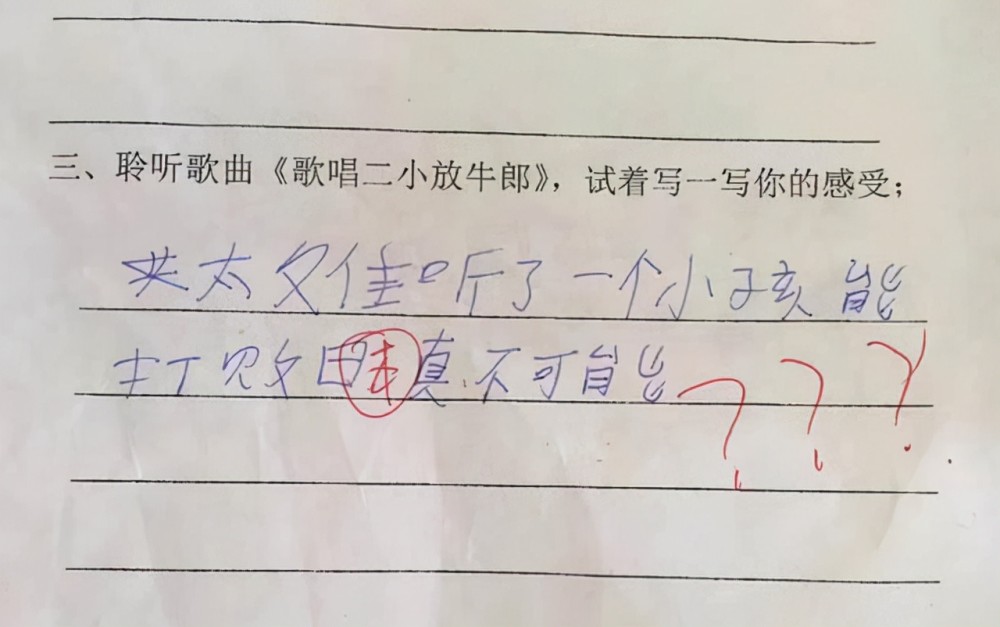 三、聆听歌曲《歌唱二小放牛郎》，试着写一写你的感受；
太 听了一个小孩能
打败日本真不可能???